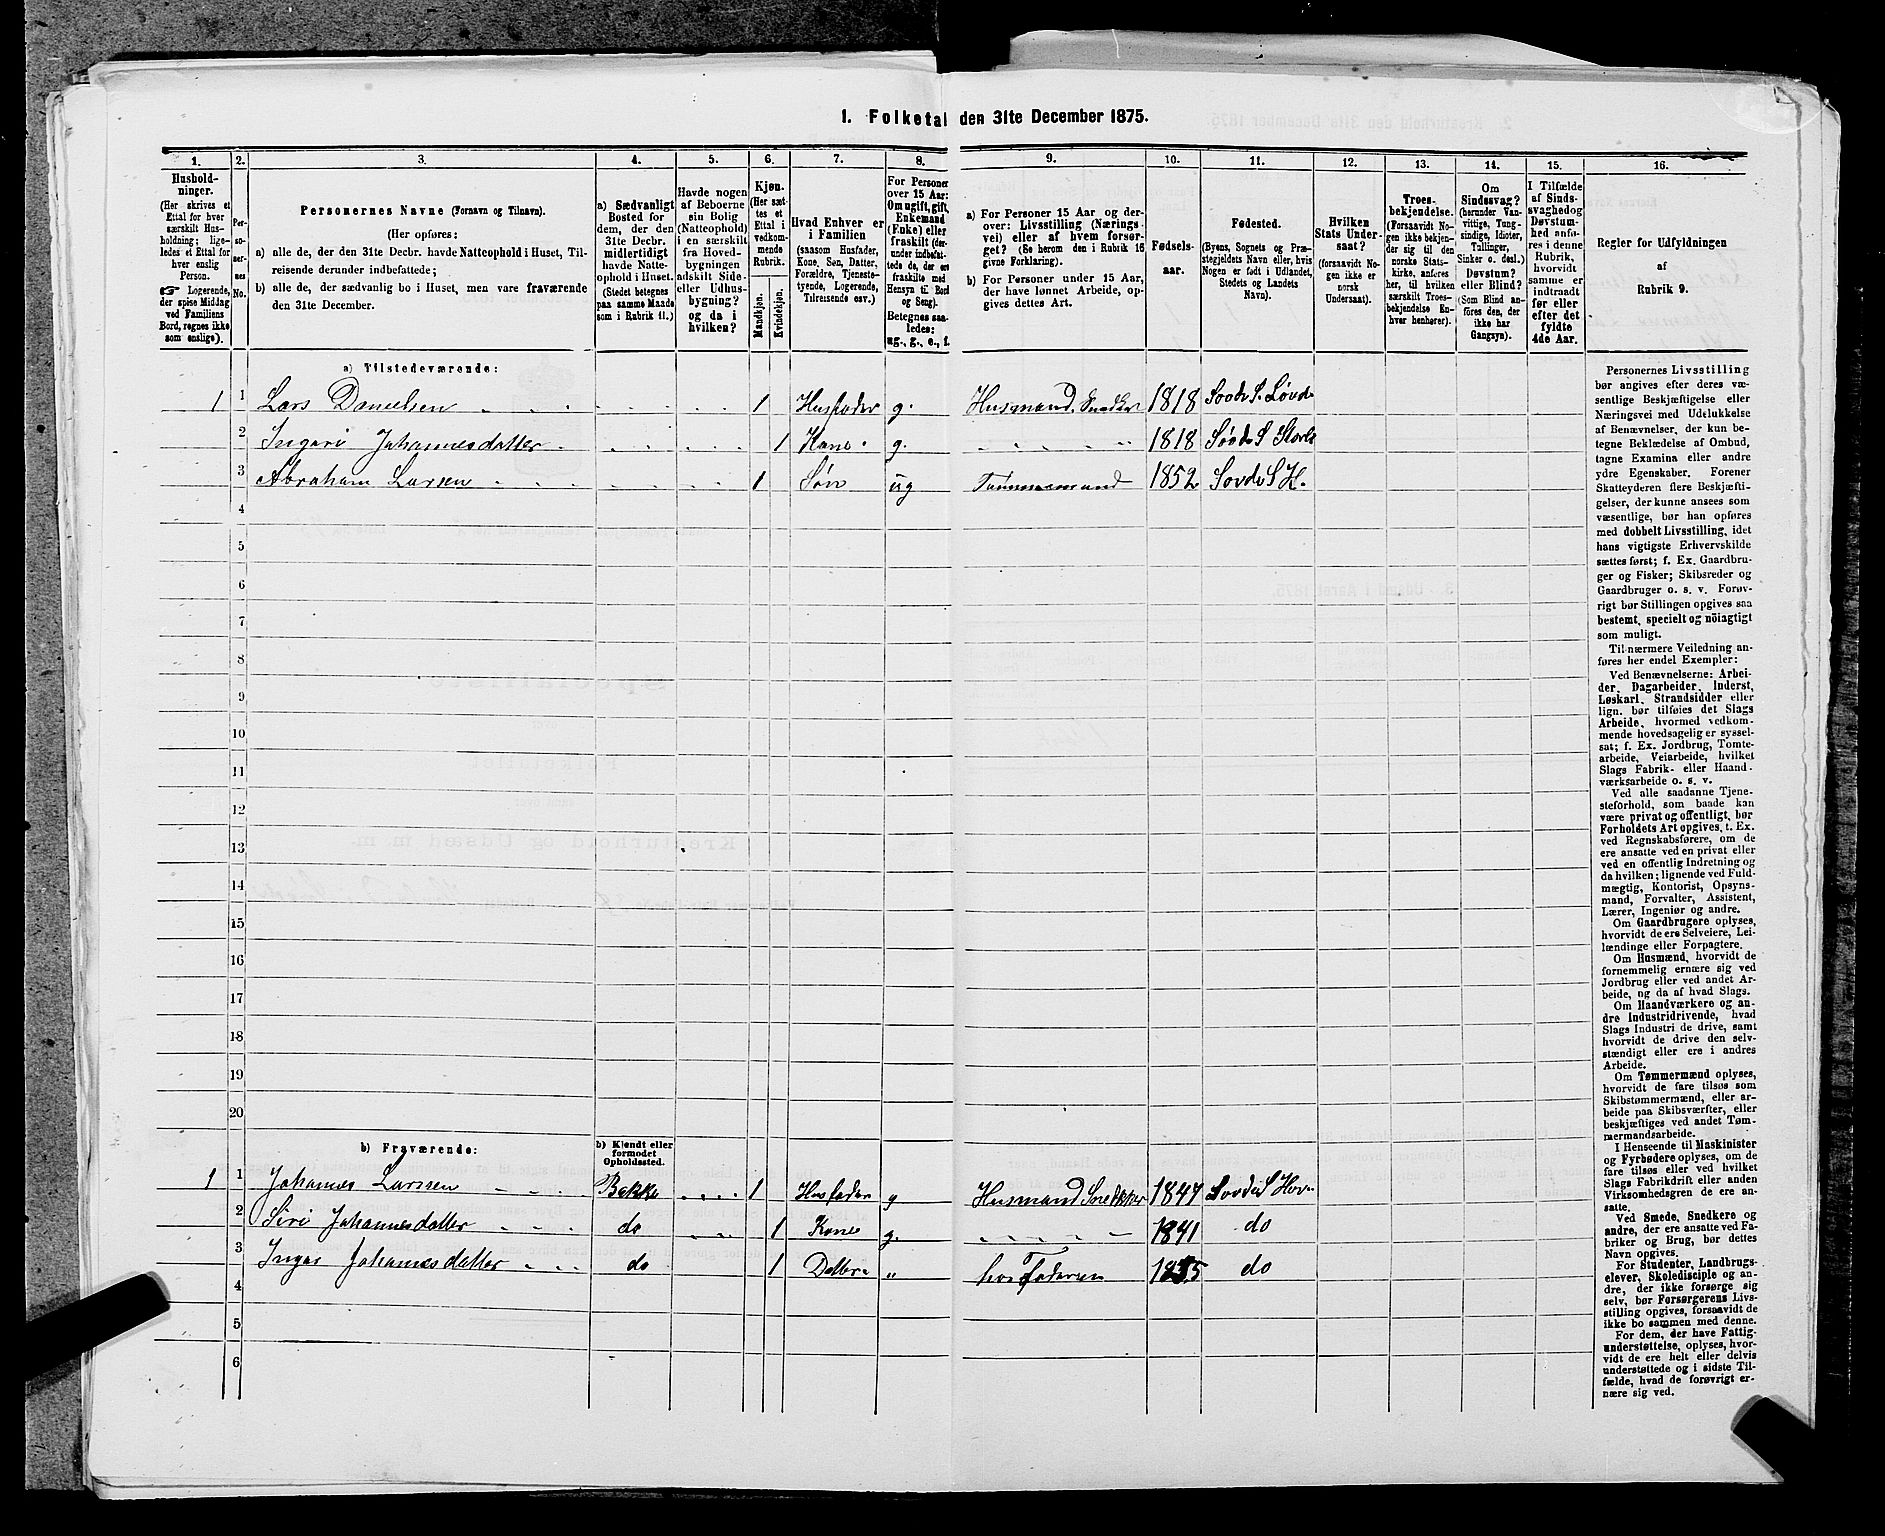 1. Folketal den 31te December 1875.
1. 2. 3. 4. 5. 6. 7. 8. 9. 10. 11. 12. 13. 14. 15. 16.
Hushold-
ninger.
(Her skrives et
Ettal for hver
særskilt Hus-
holdning; lige-
ledes et Ettal for
hver enslig
Person.
☞ Logerende,
der spise Middag
ved Familiens
Bord, regnes ikke
som enslige).
Per-
so-
ner-
nes
No.
Personernes Navne (Fornavn og Tilnavn).
(Her opføres:
a) alle de, der den 31te Decbr. havde Natteophold i Huset, Til-
reisende derunder indbefattede;
b) alle de, der sædvanlig bo i Huset, men vare fraværende
den 31te December.
a) Sædvanligt
Bosted for
dem, der den
31te Decbr.
midlertidigt
havde Natte-
ophold i Huset.
(Stedet betegnes
paa samme Maade
som i Rubrik 11.)
Havde nogen
af Beboerne
sin Bolig
(Natteophold)
i en særskilt
fra Hoved-
bygningen
adskilt Side-
eller Udhus-
bygning?
og da i
hvilken?
Kjøn.
(Her sæt-
tes et
Ettal i
vedkom-
mende
Rubrik.
Mandkjøn.
Kvindekjøn.
Hvad Enhver er
i Familien
(saasom Husfader,
Kone, Søn, Datter,
Forældre, Tjeneste-
tyende, Logerende,
Tilreisende osv.)
For Personer
over 15 Aar:
Om ugift, gift,
Enkemand
(Enke) eller
fraskilt (der-
under indbefat-
tede de, der ere
fraskilte med
Hensyn til Bord
og Seng).
Betegnes saa-
ledes:
ug., g., e., f.
a) For Personer 15 Aar og der-
over: Livsstilling (Nærings-
vei) eller af hvem forsør-
get? (Se herom den i Rubrik 16
givne Forklaring).
b) For Personer under 15 Aar,
der have lønnet Arbeide, op-
gives dettes Art.
Fødsels-
aar.
Fødested.
(Byens, Sognets og Præ-
stegjeldets Navn eller, hvis
Nogen er født i Udlandet,
Stedets og Landets
Navn).
Hvilken
Stats Under-
saat?
(forsaavidt No-
gen ikke er
norsk
Undersaat).
Troes-
bekjendelse.
(Forsaavidt No-
gen ikke bekjen-
der sig til den
norske Stats-
kirke, anføres
her, til hvilken
særskilt Troes-
bekjendelse En-
hver henhører).
Om
Sindssvag?
(herunder Van-
vittige, Tung-
sindige, Idioter,
Tullinger,
Sinker o. desl.)
Døvstum?
eller Blind?
(Som Blind an-
føres den, der
ikke har
Gangsyn).
I Tilfælde
af Sinds-
svaghed og
Døvstum-
hed anfø-
res i denne
Rubrik,
hvorvidt
samme er
indtraadt
før eller
efter det
fyldte
4de Aar.
Regler for Udfyldningen
af
Rubrik 9.
a) Tilstedeværende:
1 1 Lars Danielsen 1 Husfader g. Husmand. Snedker 1818 Sovde S.
2 Ingeri Johannesdatter 1 Kone g. 1818 Sovde S
3 Abraham Larsen 1 Søn ug Tømmermand 1852 Sovde S H.
4
5
6
7
8
9
10
11
12
13
14
15
16
17
18
19
20
b) Fraværende:
b) Kjendt eller
formodet
Opholdssted.
1 1 Johannes Larssen Bakke 1 Husfader g Husmand Snekker 1847 Sovde S
2 Siri Johannesdatter do 1 Kone g. 1841 do
3 Inger Johannesdatter do 1 Datter " hos Faderen do
4
5
6
Personernes Livsstilling
bør angives efter deres væ-
sentlige Beskjæftigelse eller
Næringsvei med Udelukkelse
af Benævnelser, der kun be-
tegne Beklædelse af Ombud,
tagne Examina eller andre
ydre Egenskaber. Forener
Skatteyderen flere Beskjæfti-
gelser, der kunne ansees som
væsentlige, bør han opføres
med dobbelt Livsstilling, idet
hans vigtigste Erhvervskilde
sættes først; f. Ex. Gaardbru-
ger og Fisker; Skibsreder og
Gaardbruger o. s. v. Forøv-
rigt bør Stillingen opgives saa
bestemt, specielt og nöiagtigt
som muligt.
Til nærmere Veiledning an-
føres her endel Exempler:
Ved Benævnelserne: Arbei-
der, Dagarbeider, Inderst,
Løskarl, Strandsidder eller
lign. bør tilføies det Slags
Arbeide, hvormed vedkom-
mende hovedsagelig er syssel-
sat; f. Ex. Jordbrug, Tomte-
arbeide, Veiarbeide, hvilket
Slags Fabrik- eller Haand-
værksarbeide o. s. v.
Ved alle saadanne Tjene-
steforhold, som baade kan
være privat og offentligt, bør
Forholdets Art opgives, t. Ex.
ved Regnskabsførere, om de
ere ansatte ved en privat eller
ved en offentlig Indretning og
da hvilken; lignende ved Fuld-
mægtig, Kontorist, Opsyns-
mand, Forvalter, Assistent,
Lærer, Ingeniør og andre.
Om Gaardbrugere oplyses,
hvorvidt de ere Selveiere, Lei-
lændinge eller Forpagtere.
Om Husmænd, hvorvidt de
fornemmelig ernære sig ved
Jordbrug eller ved andet Ar-
beide, og da af hvad Slags.
Om Haandværkere og an-
dre Industridrivende, hvad
Slags Industri de drive, samt
hvorvidt de drive den selv-
stændigt eller ere i andres
Arbeide.
Om Tømmermænd oplyses,
hvorvidt de fare tilsøs som
Skibstømmermænd, eller ar-
beide paa Skibsværfter, eller
beskjæftiges ved andet Tøm-
mermandsarbeide.
I Henseende til Maskinister
og Fyrbødere oplyses, om de
fare tilsøs eller ved hvilket
Slags Fabrikdrift eller anden
Virksomhedsgren de ere an-
satte.
Ved Smede, Snedkere og
andre, der ere ansatte ved Fa-
briker og Brug, bør dettes
Navn opgives.
For Studenter, Landbrugs-
elever, Skoledisciple og an-
dre, der ikke forsørge sig
selv, bør Forsørgerens Livs-
stilling opgives, forsaavidt de
ikke bo sammen med denne.
For dem, der have Fattig-
understøttelse, oplyses, hvor-
vidt de ere helt eller delvis
understøttede og i sidste Til-
fælde, hvad de forøvrigt er-
nære sig ved.